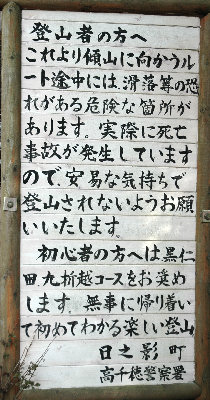 登山者の方へ
これより傾山に向かうル
ート途中には、滑落等の恐
れがある危険な箇所が
あります。実際に死亡
事故が発生しています
ので、安易な気持ちで
登山されないようお願
いいたします。
初心者の方へは黒仁
田、九折越コースをお奨め
します。無事に帰り着い
て初めてわかる楽しい登山
日之影町
高千穂警察署